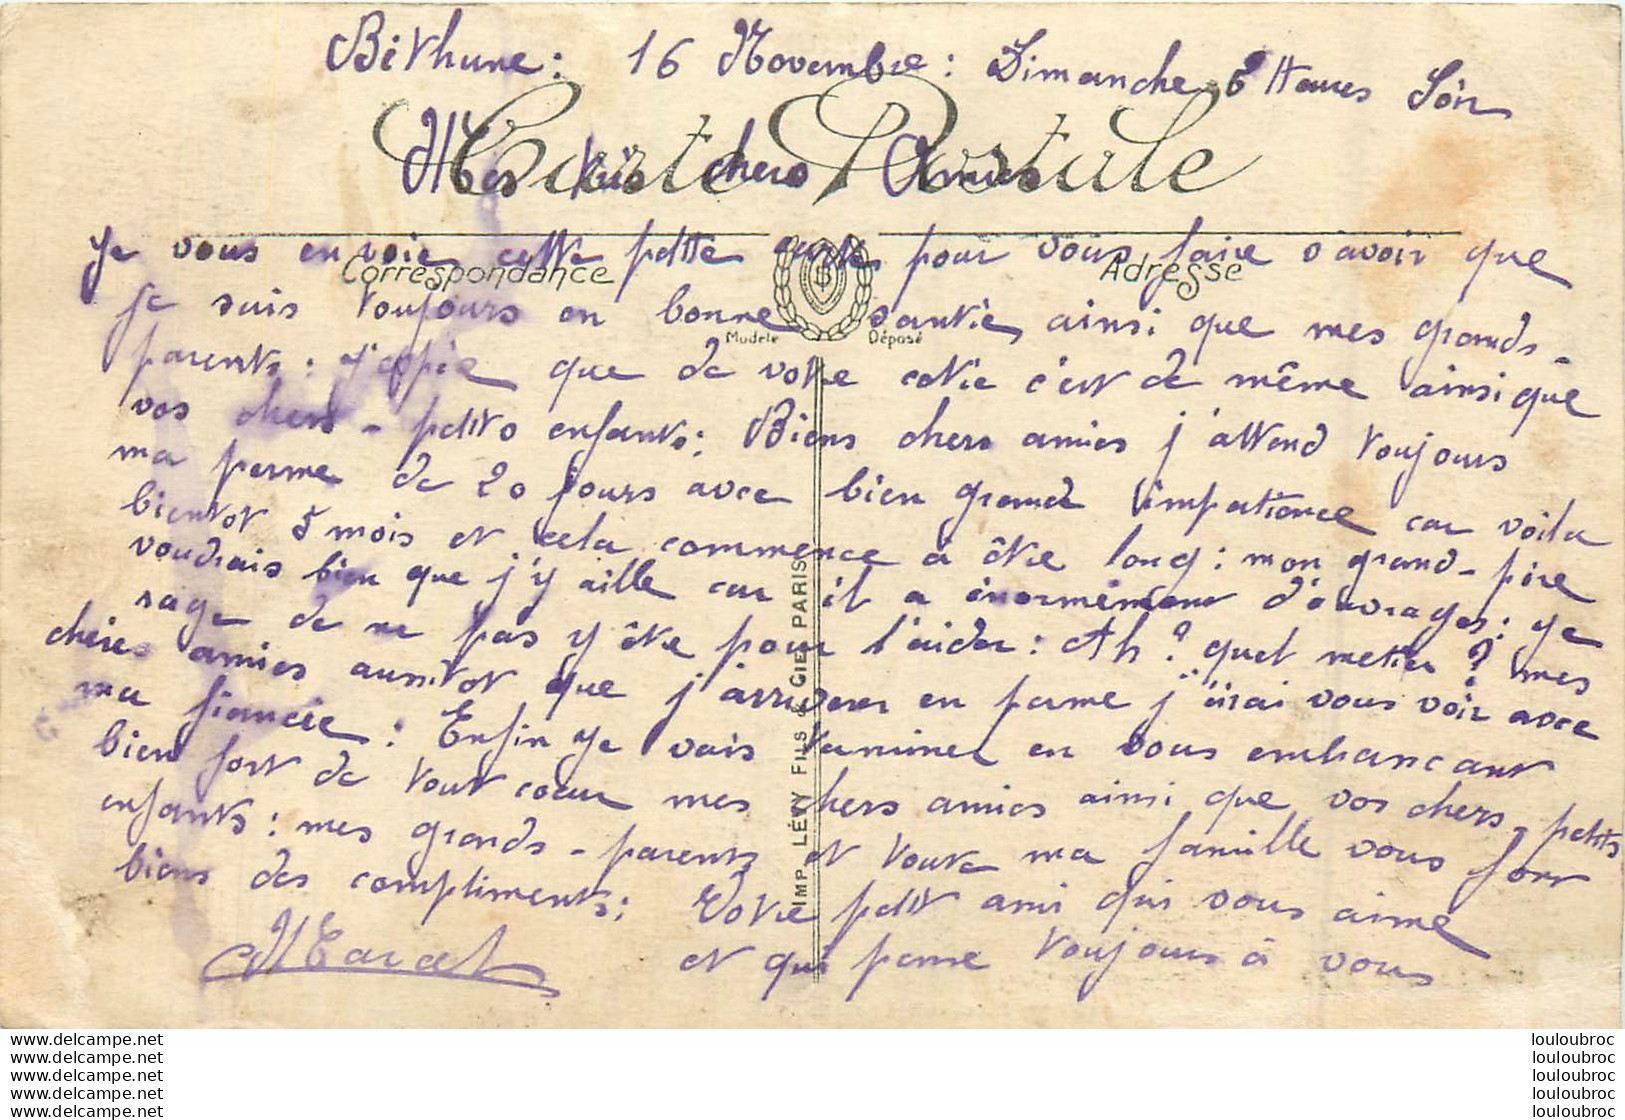 Béthune : 16 Novembre : Dimanche 6 Heures Soir
Carte Postale
Mes très chers Amies
Je vous envoie cette petite carte pour vous faire savoir que
Correspondance
Adresse
je suis toujours en bonne santée ainsi que mes grands-
Modèle Déposé
parents : j'espère que de votre cotée c'est de même ainsi que
vos chers - petits enfants : Biens chers amies j'attend toujours
ma perme de 20 jours avec bien grande impatience car voila
bientot 5 mois et cela commence à être long : mon grand-père
voudrais bien que j'y aille car il a énormément d'ouvrages : je
rage de ne pas y être pour l'aider : Ah ? quel metier ? mes
chères amies aussitot que j'arriverer en perme j'irai vous voir avec
ma fiancée : Enfin je vais terminer en vous embrancant
bien fort de tout coeur mes chers amies ainsi que vos chers petits
enfants : mes grands - parents et toute ma famille vous font
biens des compliments : Votre petit ami qui vous aime
Marcel et qui pense toujours à vous
IMP. LÉVY FILS & CIE, PARIS
louloubroc.com louloubroc
louloubroc.com louloubroc
louloubroc.com louloubroc
louloubroc.com louloubroc
louloubroc.com louloubroc